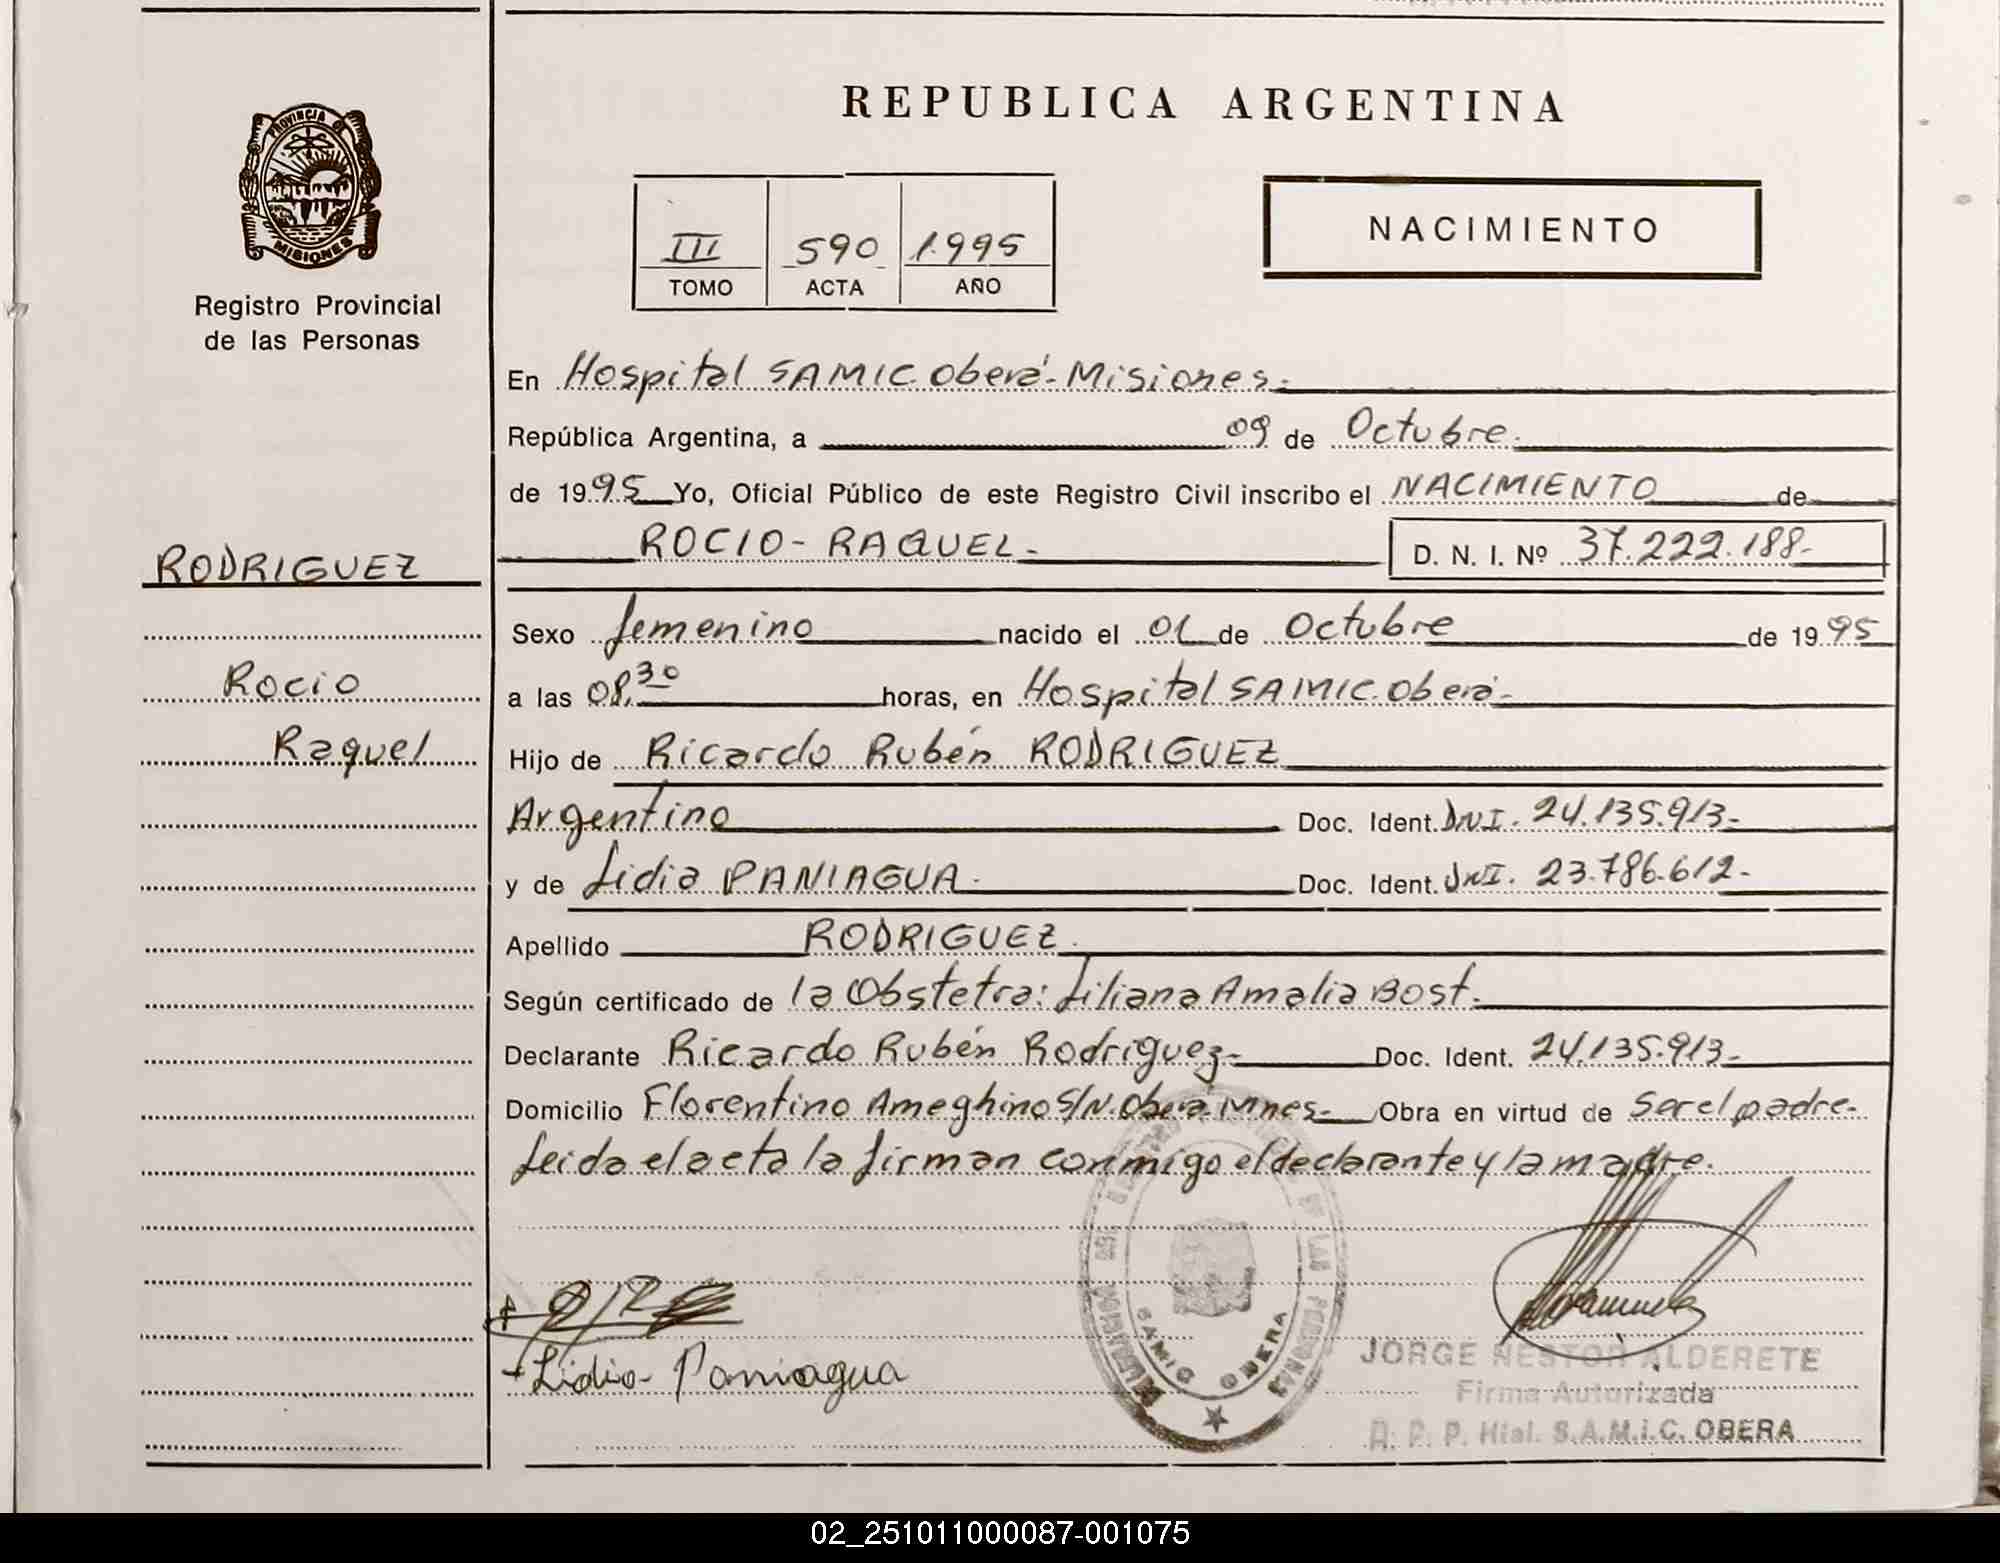 PROVINCIA DE
MISIONES
Registro Provincial
de las Personas
RODRIGUEZ
Rocio
Raquel
REPUBLICA ARGENTINA
III 590 1.995
TOMO ACTA AÑO
NACIMIENTO
En Hospital SAMIC Oberá-Misiones.
República Argentina, a 09 de Octubre.
de 1995 Yo, Oficial Público de este Registro Civil inscribo el NACIMIENTO de
ROCIO-RAQUEL- D. N. I. Nº 37.222.188-
Sexo femenino nacido el 01 de Octubre de 1995
a las 08,30 horas, en Hospital SAMIC Oberá-
Hijo de Ricardo Rubén RODRIGUEZ
Argentino Doc. Ident. DNI. 24.135.913-
y de Lidia PANIAGUA. Doc. Ident. DNI. 23.786.612-
Apellido RODRIGUEZ.
Según certificado de la Obstetra: Liliana Amalia Bost.
Declarante Ricardo Rubén Rodriguez- Doc. Ident. 24.135.913-
Domicilio Florentino Ameghino S/N. Oberá Mnes- Obra en virtud de Ser el padre-
Leida el acta la firman conmigo el declarante y la madre.
Lidia Paniagua
DE LAS PERSONAS
SAMIC OBERA
JORGE NESTOR ALDERETE
Firma Autorizada
S.A.M.I.C. OBERA
02_251011000087-001075